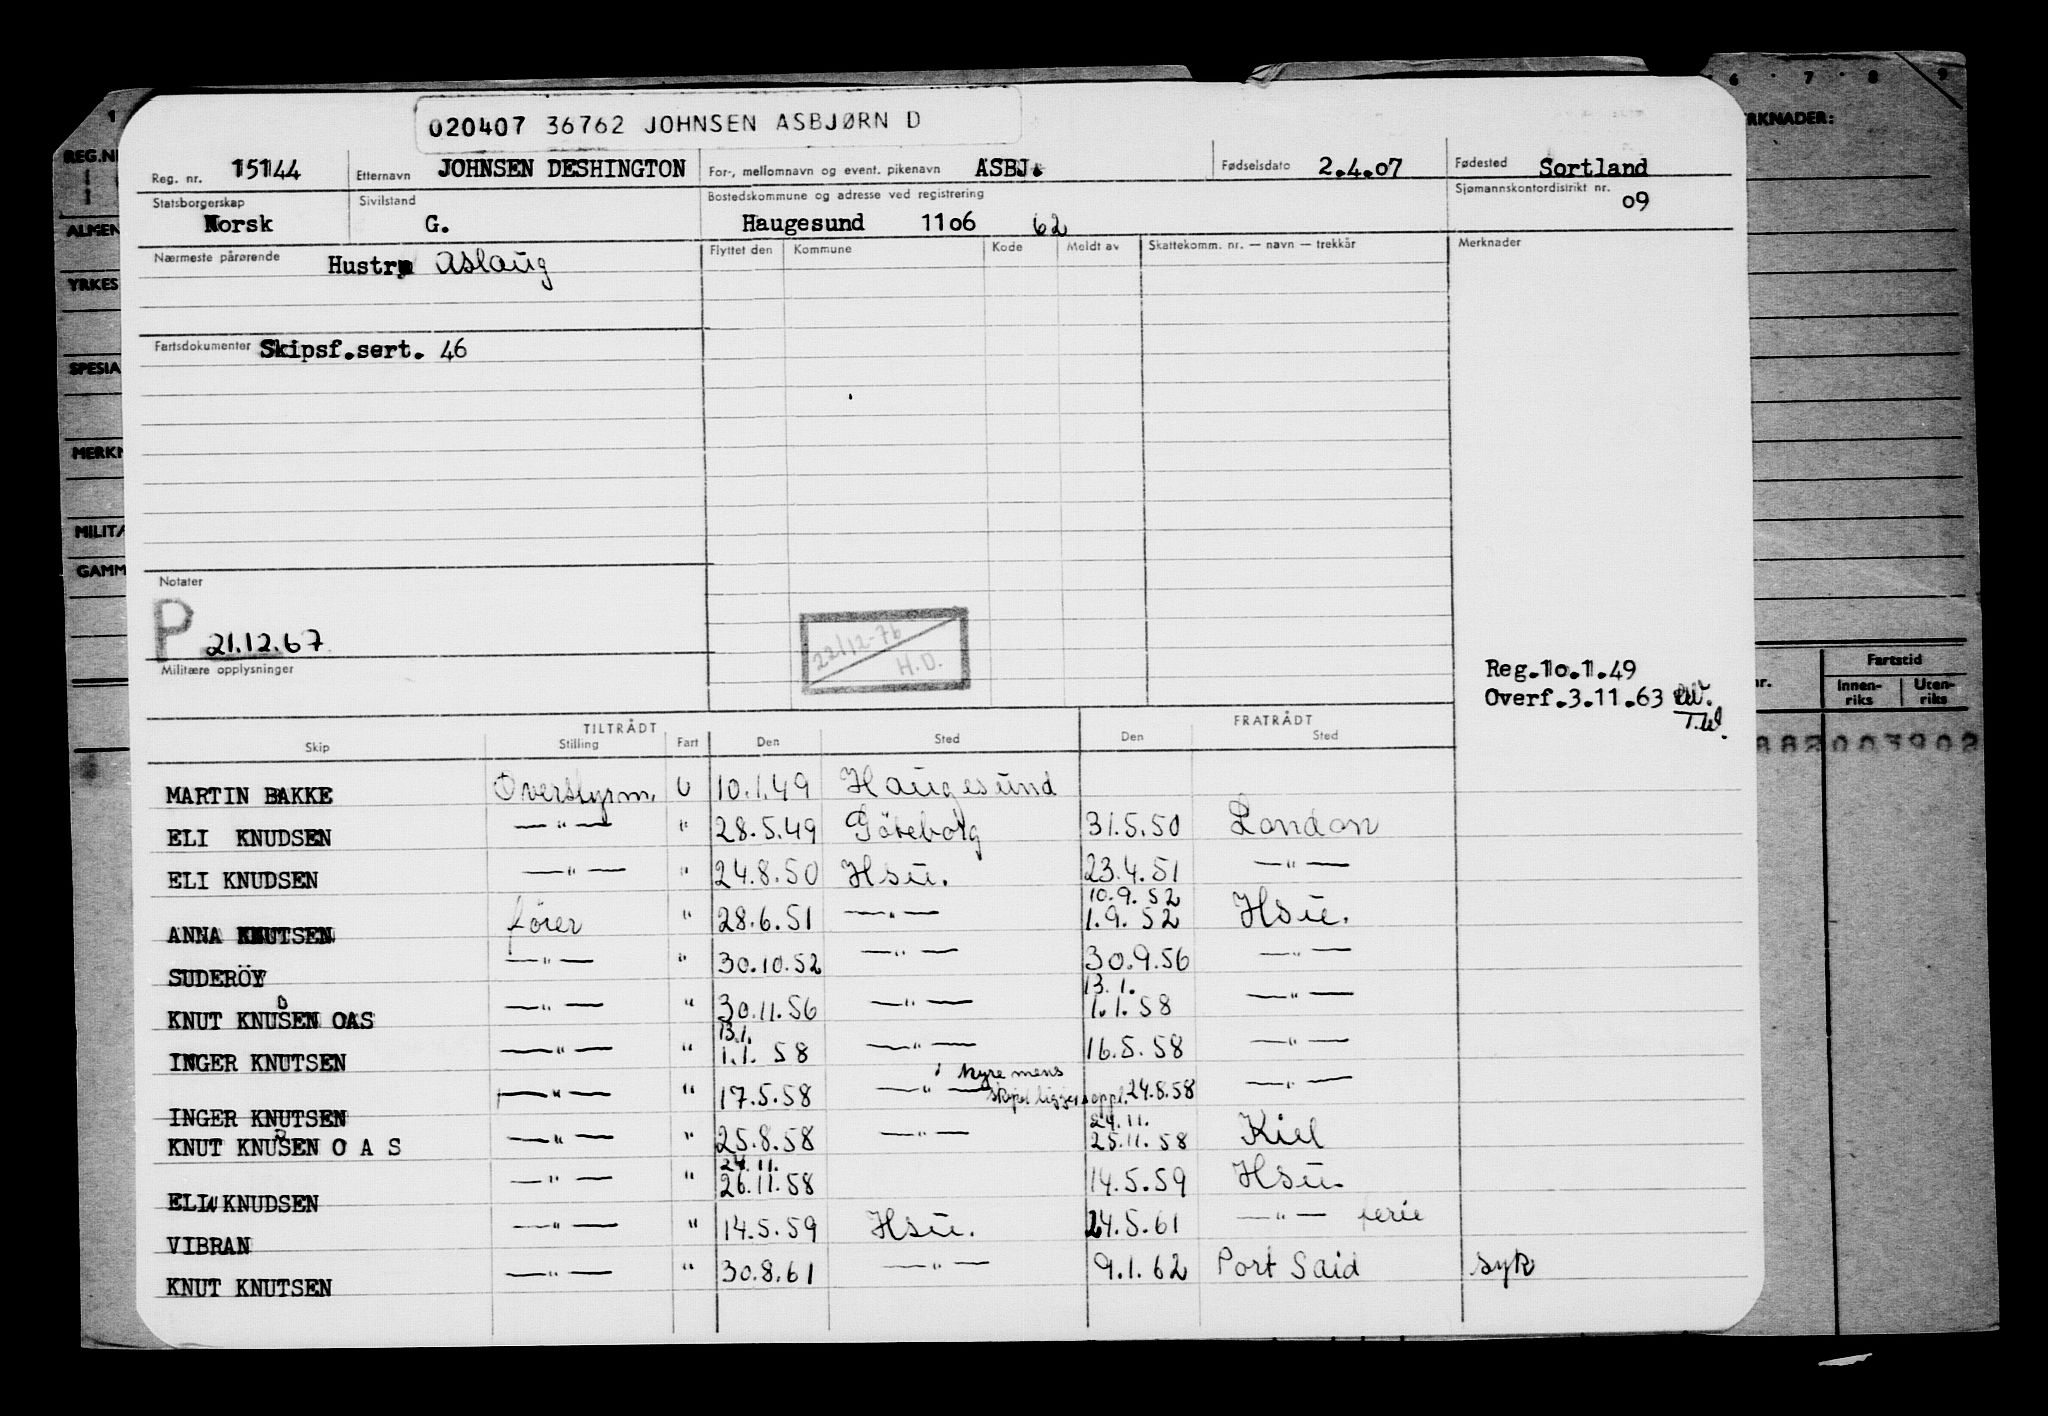 020407 36762 JOHNSEN ASBJØRN D
Reg. nr. 15144 Etternavn JOHNSEN DESHINGTON For-, mellomnavn og event. pikenavn ASBJ. Fødselsdato 2.4.07 Fødested Sortland
Statsborgerskap Norsk Sivilstand G. Bostedskommune og adresse ved registrering Haugesund 11o6 62 Sjømannskontordistrikt nr. o9
Nærmeste pårørende Hustru Aslaug Flyttet den Kommune Kode Meldt av Skattekomm. nr. — navn — trekkår Merknader
Fartsdokumenter Skipsf.sert. 46
Notater
P 21.12.67
22/12-76
H.D.
Militære opplysninger
Reg.1o.1.49
Overf.3.11.63
TILTRÅDT FRATRÅDT
Skip Stilling Fart Den Sted Den Sted
MARTIN BAKKE Overstyrm. U 10.1.49 Haugesund
ELI KNUDSEN — " — " 28.5.49 Göteborg 31.5.50 London
ELI KNUDSEN — " — " 24.8.50 Hsu. 23.4.51 — " —
10.9.52
ANNA KNUTSEN förer " 28.6.51 — " — 1.9.52 Hsu.
SUDERÖY — " — " 30.10.52 — " — 30.9.56 — " —
D 13.1.
KNUT KNUSEN OAS — " — " 30.11.56 — " — 1.1.58 — " —
13.1.
INGER KNUTSEN — " — " 1.1.58 — " — 16.5.58 — " —
i hyre mens
INGER KNUTSEN — " — " 17.5.58 — " — skipet ligger i oppl. 24.8.58 — " —
D 24.11.
KNUT KNUSEN O A S — " — " 25.8.58 — " — 25.11.58 Kiel
24.11.
ELI KNUDSEN — " — " 26.11.58 14.5.59 Hsu.
VIBRAN — " — " 14.5.59 Hsu. 24.5.61 — " — ferie
KNUT KNUTSEN — " — " 30.8.61 — " — 9.1.62 Port Said syk
1
REG.N
ALMEN
YRKES
SPESIA
MERKN
MILITÆ
GAMM
6 7 8 9
RKNADER:
nr. Fartstid
Innen-riks Uten-riks
882 003902